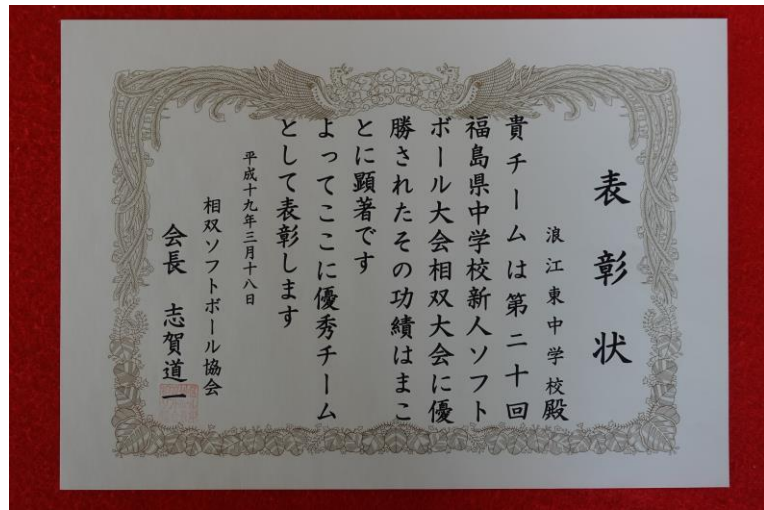 表彰状
浪江東中学校殿
貴チームは第二十回
福島県中学校新人ソフト
ボール大会相双大会に優
勝されたその功績はまこ
とに顕著です
よってここに優秀チーム
として表彰します
平成十九年三月十八日
相双ソフトボール協会
会長 志賀道一